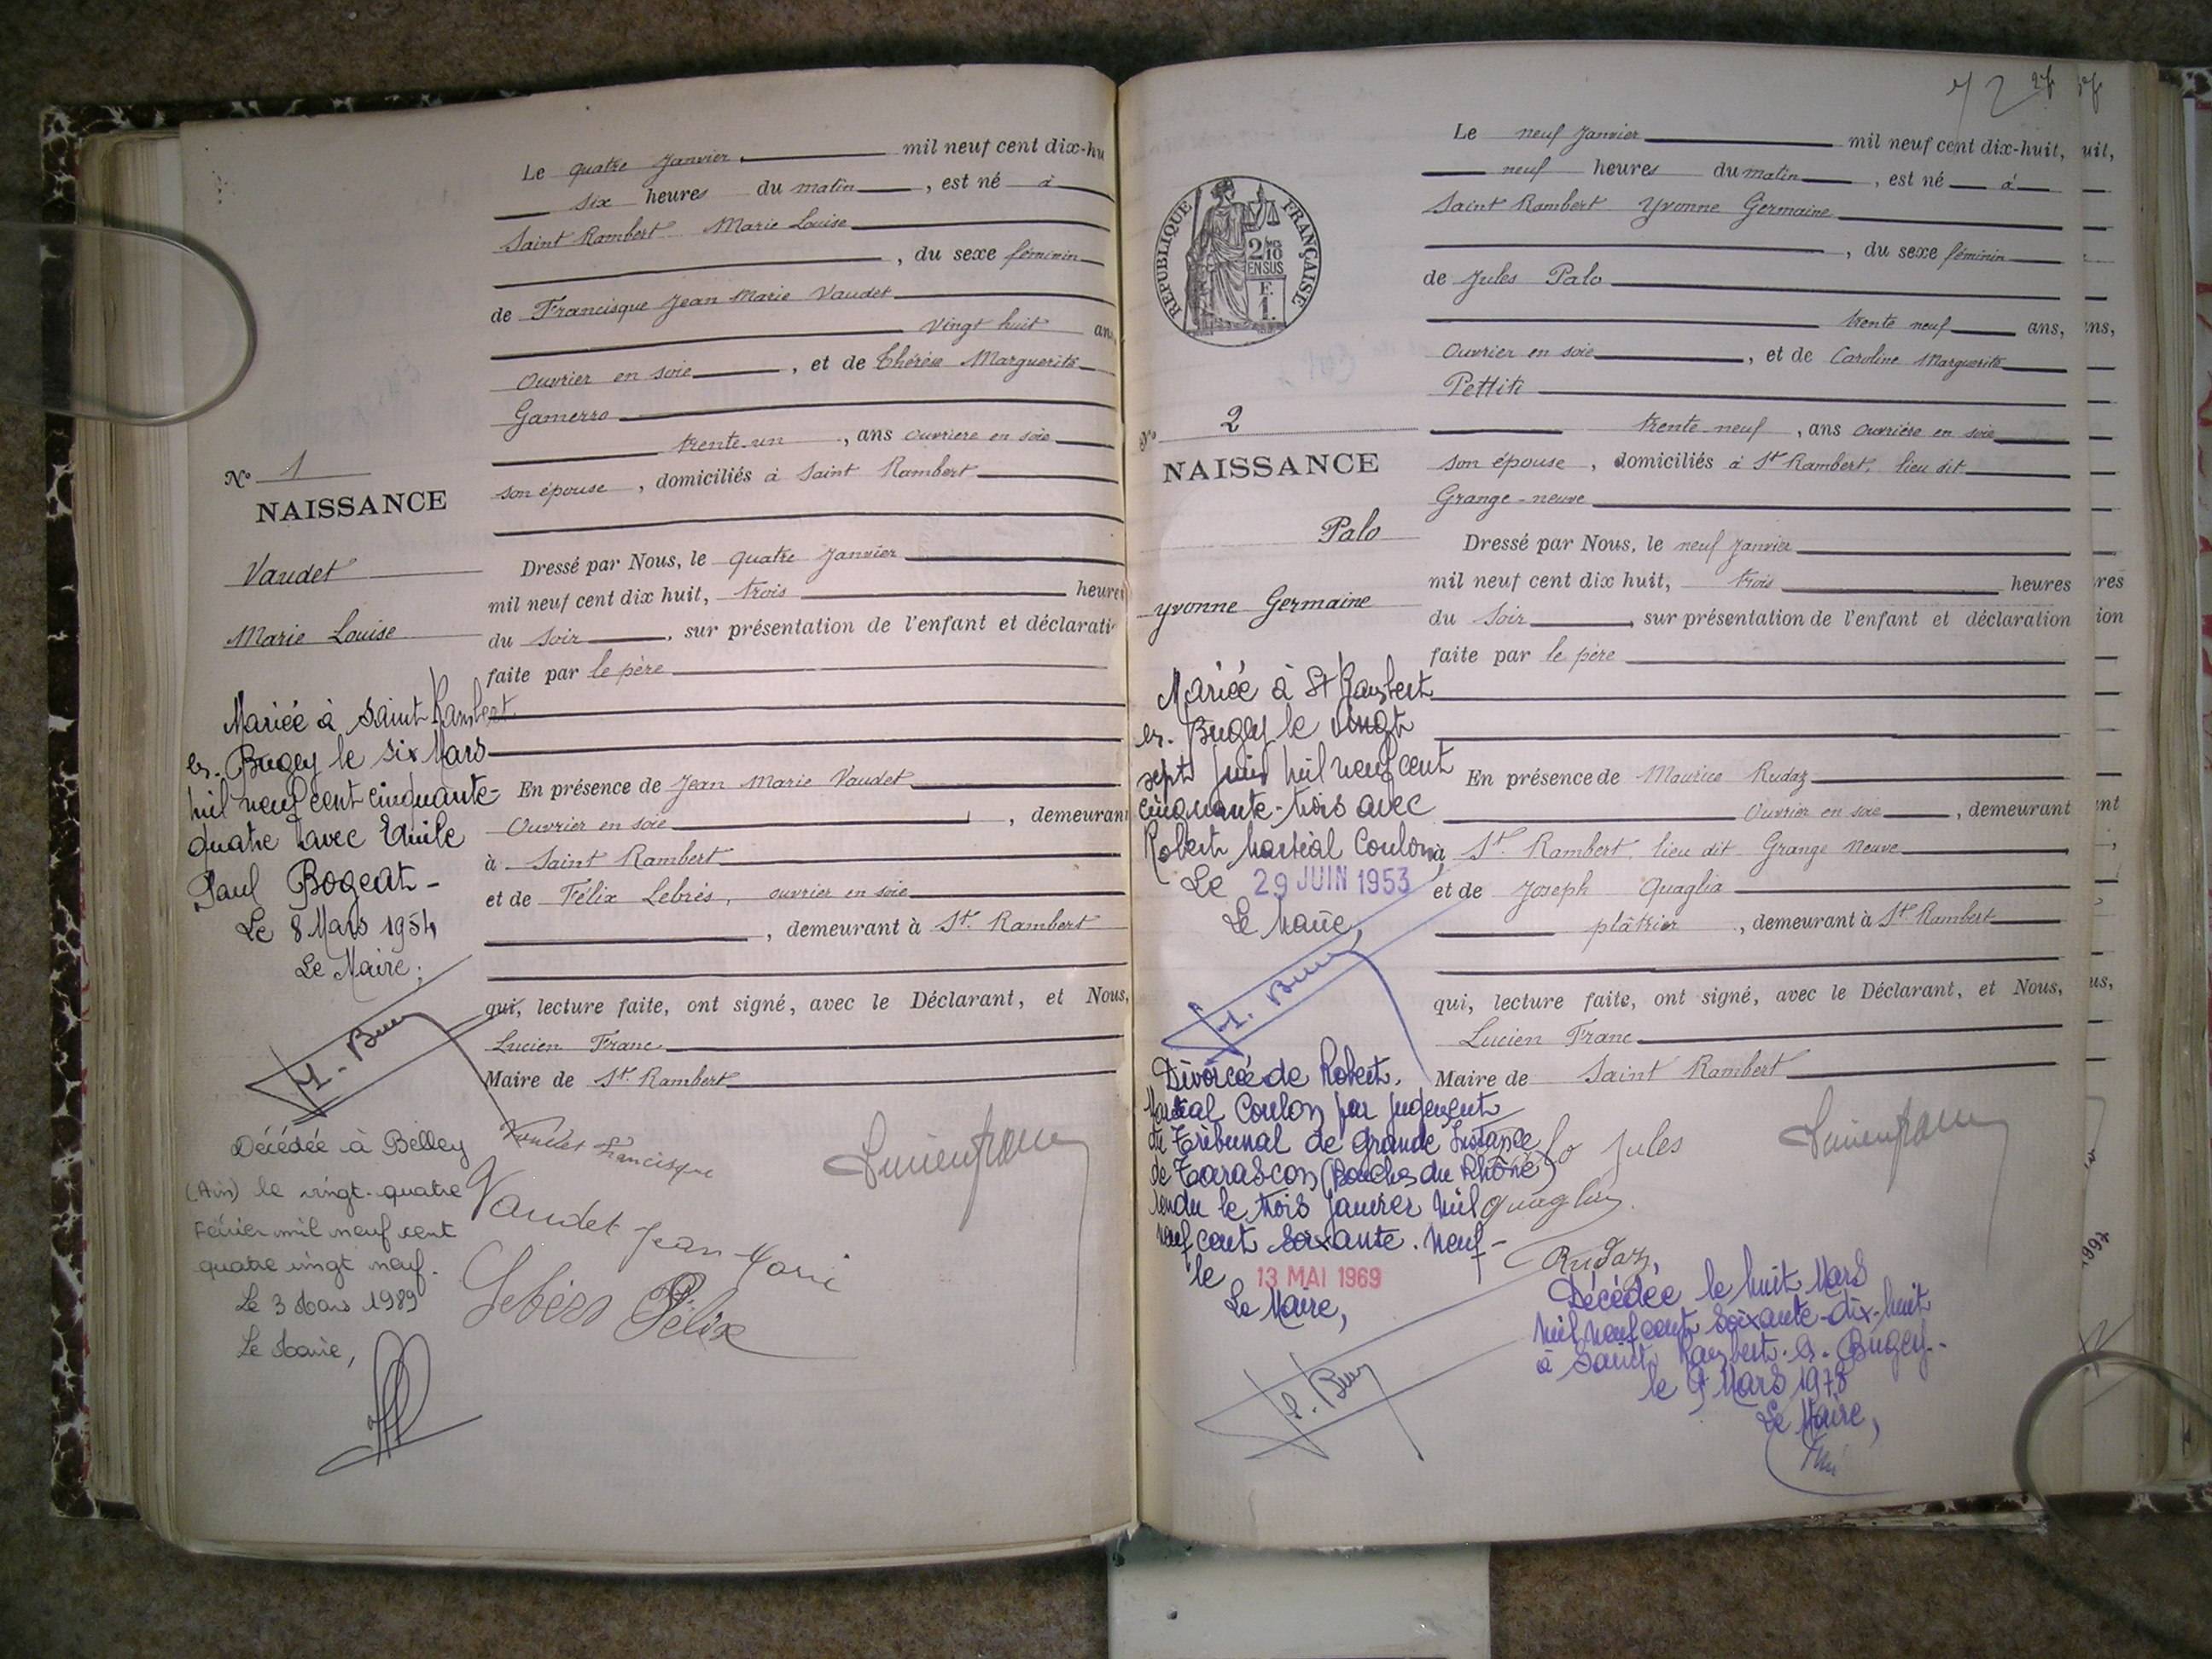 Le quatre Janvier, mil neuf cent dix-hu
six heures du matin, est né à
Saint Rambert Marie Louise
, du sexe féminin
de Francisque Jean Marie Vaudet
vingt huit ans
Ouvrier en soie, et de Thérèse Marguerite
Gamerro
trente-un, ans ouvrière en soie
son épouse, domiciliés à Saint Rambert
N° 1
NAISSANCE
Vaudet
Marie Louise
Dressé par Nous, le quatre Janvier
mil neuf cent dix huit, trois heures
du soir, sur présentation de l'enfant et déclarati
faite par le père
En présence de Jean Marie Vaudet
Ouvrier en soie, demeurant
à Saint Rambert
et de Félix Lebrés, ouvrier en soie
, demeurant à St. Rambert
qui, lecture faite, ont signé, avec le Déclarant, et Nous,
Lucien Franc
Maire de St. Rambert
Mariée à Saint Rambert
en-Bugey le six Mars
mil neuf cent cinquante-
quatre avec Emile
Paul Bogeat-
Le 8 Mars 1954
Le Maire;
Décédée à Belley
(Ain) le vingt-quatre
Février mil neuf cent
quatre vingt neuf.
Le 3 Mars 1989
Le Maire,
Vaudet Francisque
Vaudet Jean Marie
Félix
72
Le neuf Janvier mil neuf cent dix-huit,
neuf heures du matin, est né à
Saint Rambert Yvonne Germaine
, du sexe féminin
de Jules Palo
trente neuf ans,
Ouvrier en soie, et de Caroline Marguerite
Pettiti
trente-neuf, ans ouvrière en soie
son épouse, domiciliés à St Rambert, lieu dit
Grange-neuve
RÉPUBLIQUE FRANÇAISE
2/10
EN SUS
F.
1.
N° 2
NAISSANCE
Palo
Yvonne Germaine
Dressé par Nous, le neuf Janvier
mil neuf cent dix huit, trois heures
du soir, sur présentation de l'enfant et déclaration
faite par le père
En présence de Maurice Rudaz
Ouvrier en soie, demeurant
à St. Rambert, lieu dit Grange Neuve
et de Joseph Quaglia
plâtrier, demeurant à St. Rambert
qui, lecture faite, ont signé, avec le Déclarant, et Nous,
Lucien Franc
Maire de Saint Rambert
Mariée à St Rambert
en-Bugey le vingt
sept Juin mil neuf cent
cinquante-trois avec
Robert Martial Coulon
Le 29 JUIN 1953
Le Maire,
Divorcée de Robert
Martial Coulon par jugement
du Tribunal de Grande Instance
de Tarascon (Bouches du Rhône)
rendu le trois Janvier mil
neuf cent soixante-neuf-
le 13 MAI 1969
Le Maire,
Palo Jules
Quaglia
Rudaz,
Décédée le huit Mars
mil neuf cent soixante-dix-huit
à Saint Rambert-en-Bugey.
le 9 Mars 1978
Le Maire,
uit,
ns,
res
ion
nt
us,